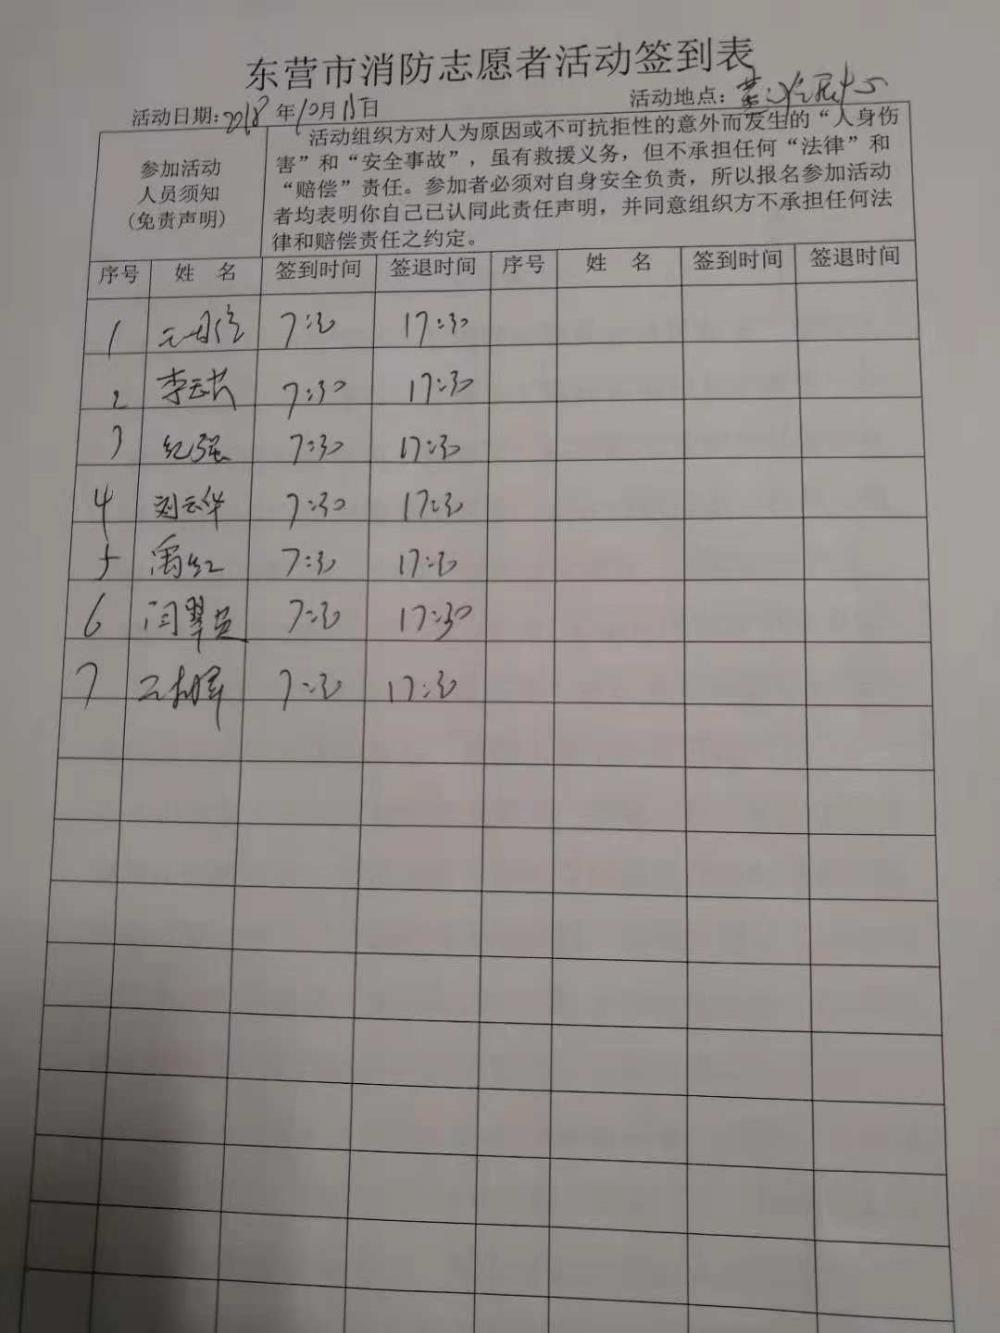 东营市消防志愿者活动签到表
活动日期:2018年10月15日 活动地点:
参加活动
人员须知
(免责声明)
活动组织方对人为原因或不可抗拒性的意外而发生的“人身伤
害”和“安全事故”，虽有救援义务，但不承担任何“法律”和
“赔偿”责任。参加者必须对自身安全负责，所以报名参加活动
者均表明你自己已认同此责任声明，并同意组织方不承担任何法
律和赔偿责任之约定。
序号 姓 名 签到时间 签退时间 序号 姓 名 签到时间 签退时间
1 7:30 17:30
2 李 7:30 17:30
3 纪强 7:30 17:30
4 刘云华 7:30 17:30
5 禹红 7:30 17:30
6 闫翠英 7:30 17:30
7 7:30 17:30